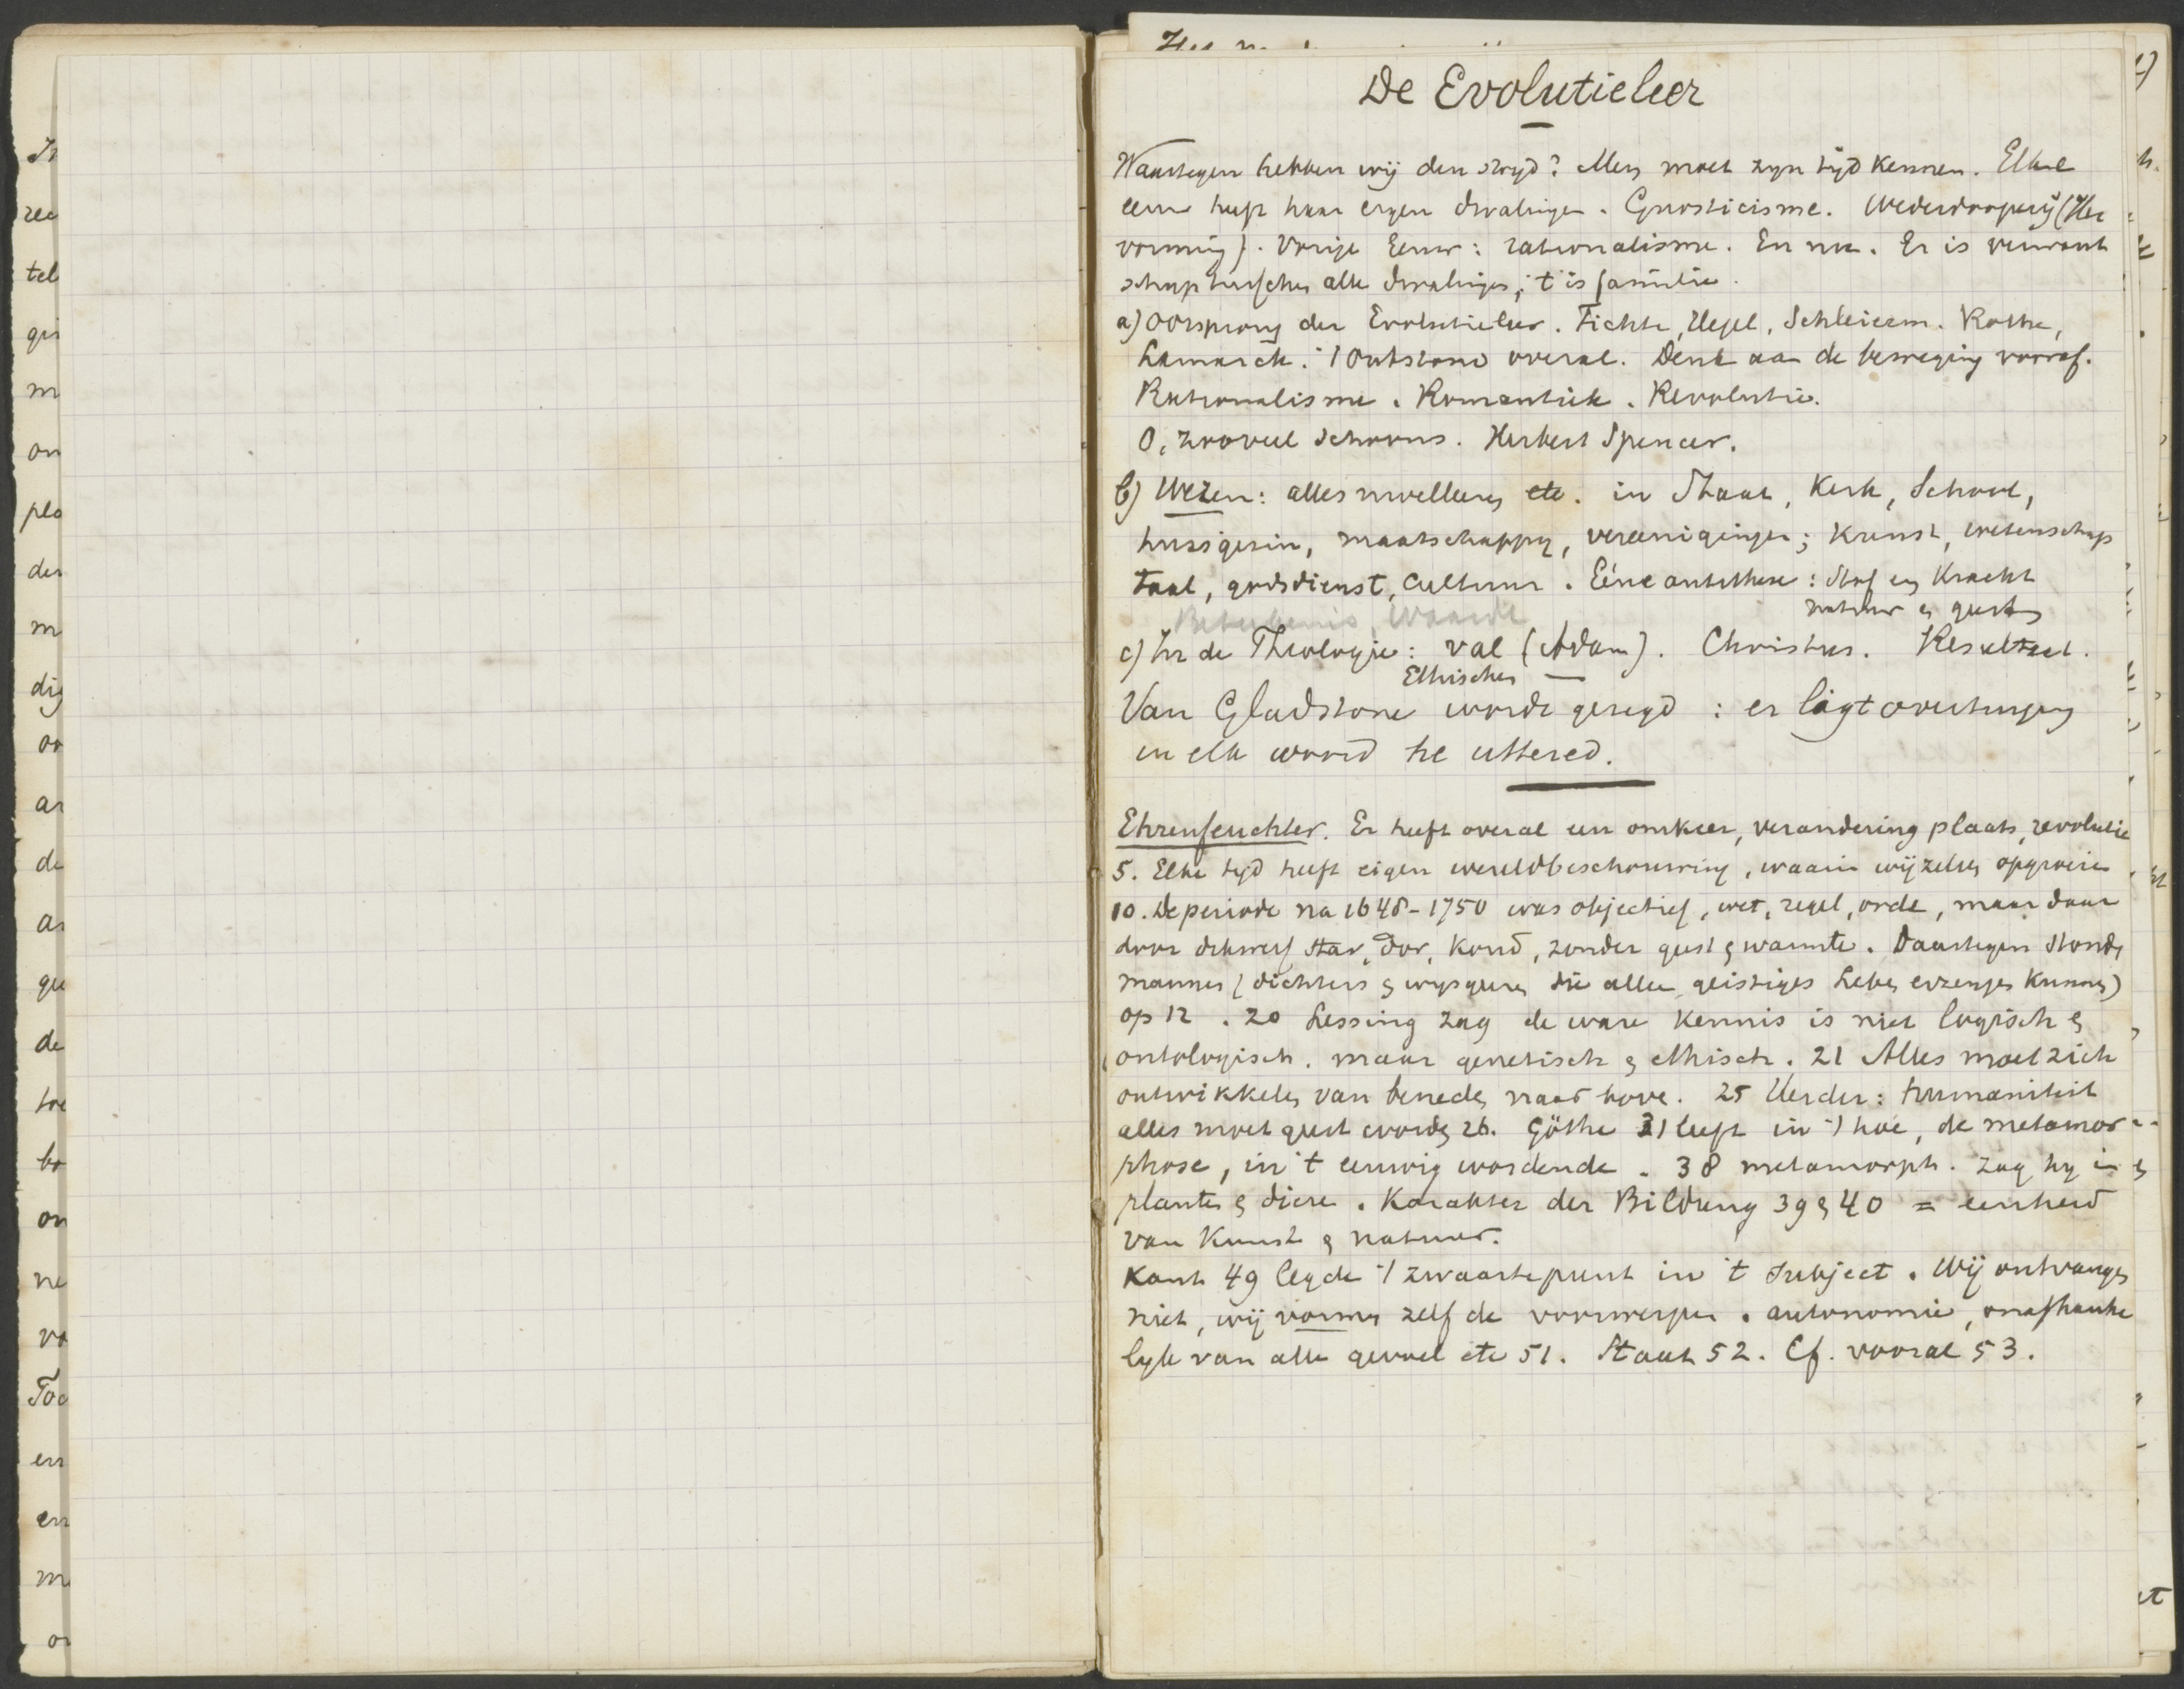 De Evolutieleer
Waartegen hebben wij den strijd? Men moet zijn tijd kennen. Elke
eeuw heeft haar eigen dwalingen. Gnosticisme. Wederdooperij (Her
vorming). Vorige Eeuw: rationalisme. En nu. Er is verwant
schap tusschen alle dwalingen; 't is familie.
a) Oorsprong der Evolutieleer. Fichte, Hegel, Schleierm. Rothe,
Lamarck. 't Ontstond overal. Denk aan de beweging vooraf.
Rationalisme. Romantiek. Revolutie.
O, zooveel schoons. Herbert Spencer.
b) Wezen: alles etc. in Staat, Kerk, School,
huisgezin, maatschappy, vereenigingen; Kunst, wetenschap
taal, godsdienst, cultuur. Eéne antithese: Stof en Kracht
natuur en geest
Beteekenis, Waarde
c) In de Theologie: val (Adam). Christus. Resultaat.
Ethischen —
Van Gladstone werde gezegd: er ligt overtuiging
in elk woord he uttered.
Ehrenfeuchter. Er heeft overal een omkeer, verandering plaats, revolutie
5. Elke tijd heeft eigen wereldbeschouwing, waarin wij zelven opgroeien
10. De periode na 1648-1750 was objectief, wet, regel, orde, maar daar
door star, dor, koud, zonder geest en warmte. Daartegen stonden
mannen (dichters en wijsgeeren die allen geistiges Leben erzeugen kunnen)
op 12. 20 Lessing zag de ware kennis is niet logisch en
ontologisch. maar genetisch en ethisch. 21 Alles moet zich
ontwikkelen van beneden naar boven. 25 Herder: humaniteit
alles moet geest worden 26. Göthe 31 leeft in 't hoe, de metamor-
phose, in 't eeuwig wordende. 38 metamorph. zag hy in
planten en dieren. Karakter der Bildung 39 en 40 = eenheid
van Kunst en natuur.
Kant 49 legde 't zwaartepunt in 't subject. Wij ontvangen
niet, wij vormen zelf de voorwerpen. autonomie, onafhanke
lijk van alle gevoel etc 51. Staat 52. Cf. vooral 53.